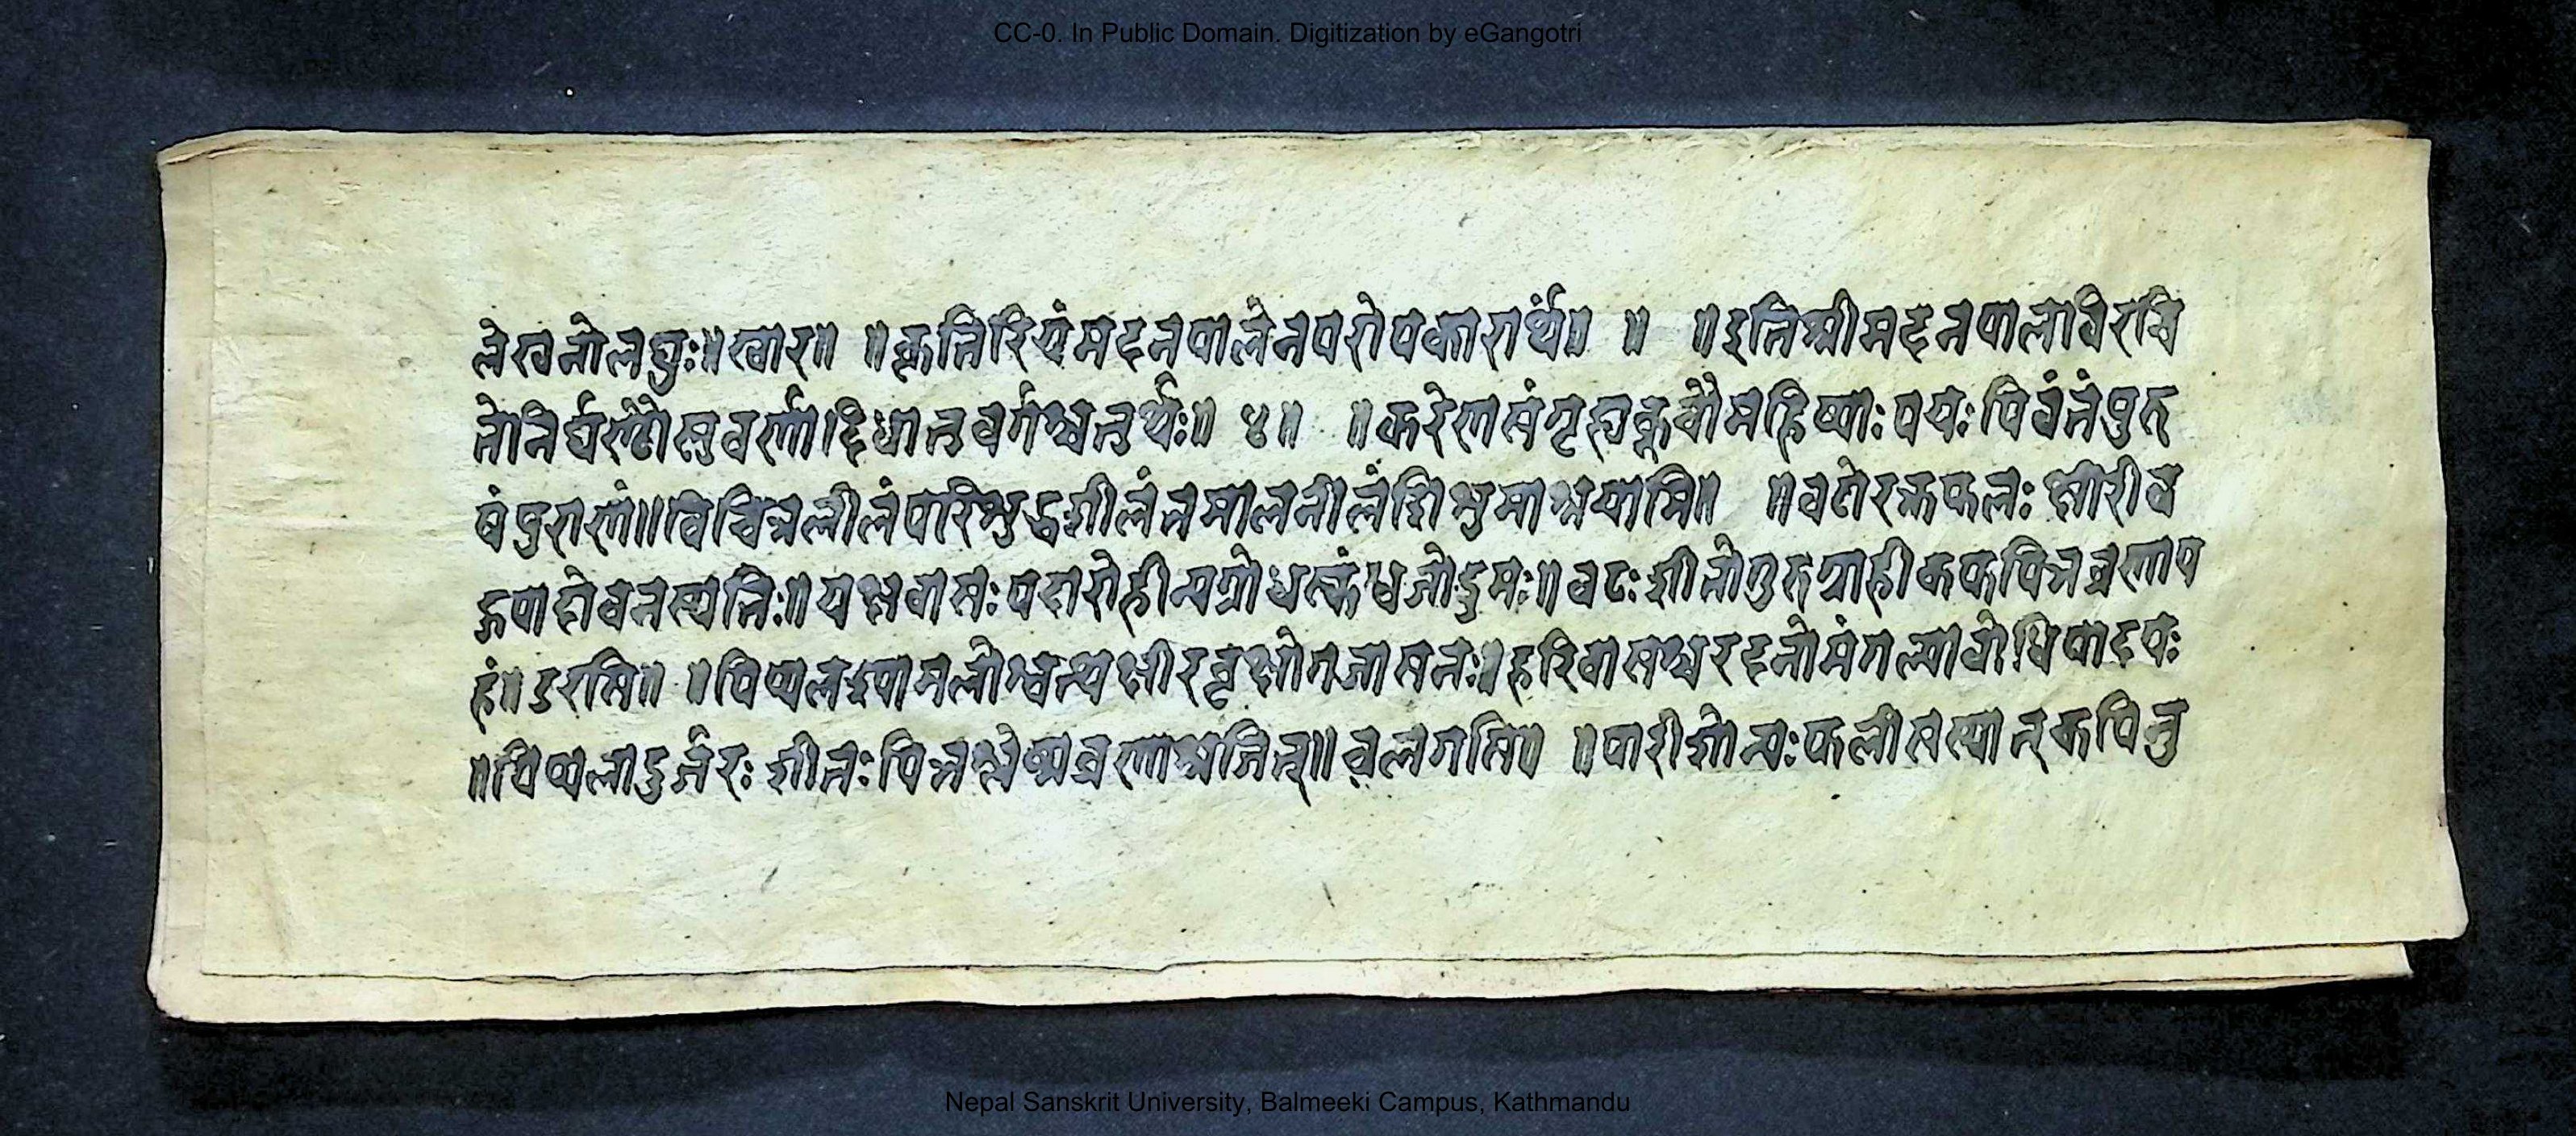 CC-0. In Public Domain. Digitization by eGangotri
लेखनोलघुः॥खार॥ ॥कृतिरियंमदनपालेनपरोपकारार्थं॥ ॥ ॥इतिश्रीमदनपालविरचि
तेनिर्घण्टोसुवर्णादिधातुवर्गश्चतुर्थः॥ ४॥ ॥करेणसंगृह्य महिष्याःपयःपिवंतंपुरु
षंपुराणं॥विचित्रलीलं शीलंतमालनीलंशिशुमाश्रयामि॥ ॥वटोरक्तफलःक्षीरीव
हुपादोवनस्पतिः॥यक्षवासःपदारोहीन्यग्रोधस्कंधजोद्रुमः॥वटःशीतोगुरुग्राहीकफपित्तव्रणाप
हं॥डरसि॥ ॥पिप्पल श्वत्थक्षीरवृक्षोगजासनः॥हरिवासश्चरदनोमंगल्यावोधिपादपः
॥पिप्पलादुर्जरःशीतःपित्तश्लेष्मव्रणास्रजित्॥वलगसि॥ ॥पारीशोन्यःफलीसस्यात्कपितु
Nepal Sanskrit University, Balmeeki Campus, Kathmandu